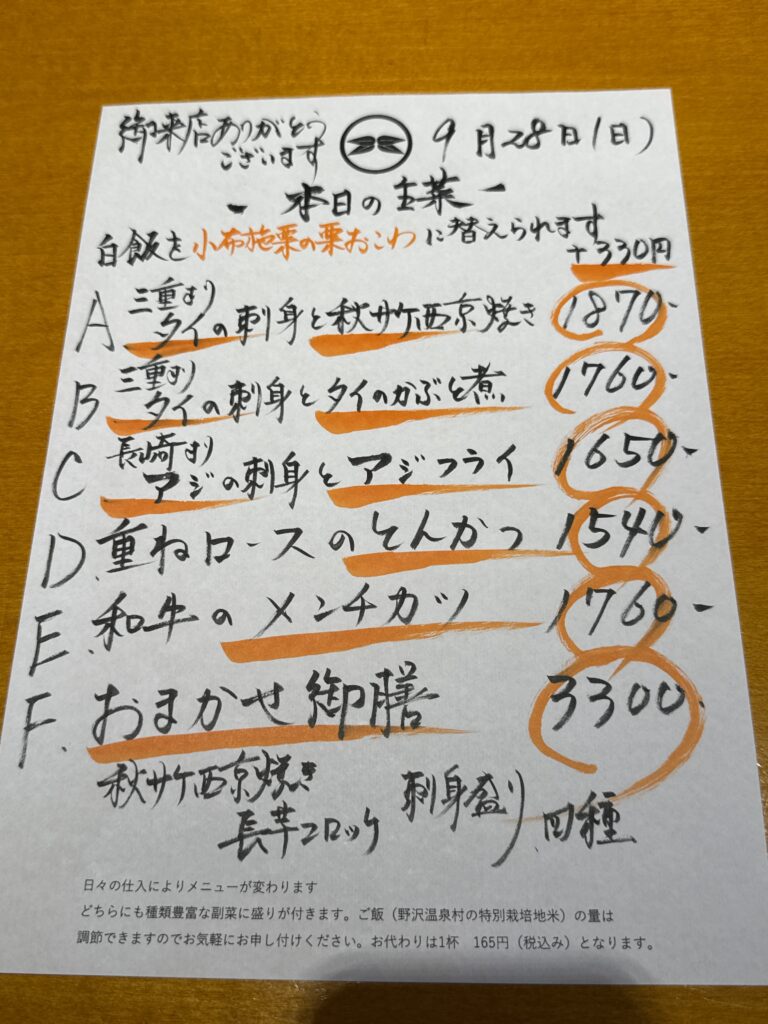 御来店ありがとう
ございます
9月28日(日)
- 本日の主菜 -
白飯を小布施栗の栗おこわに替えられます
+330円
A 三重より
タイの刺身と秋サケ西京焼き 1870-
B 三重より
タイの刺身とタイのかぶと煮 1760-
C 長崎より
アジの刺身とアジフライ 1650-
D. 重ねロースのとんかつ 1540-
E. 和牛のメンチカツ 1760-
F. おまかせ御膳 3300-
秋サケ西京焼き 刺身盛り四種
長芋コロッケ
日々の仕入によりメニューが変わります
どちらにも種類豊富な副菜に盛りが付きます。ご飯（野沢温泉村の特別栽培地米）の量は
調節できますのでお気軽にお申し付けください。お代わりは1杯 165円（税込み）となります。